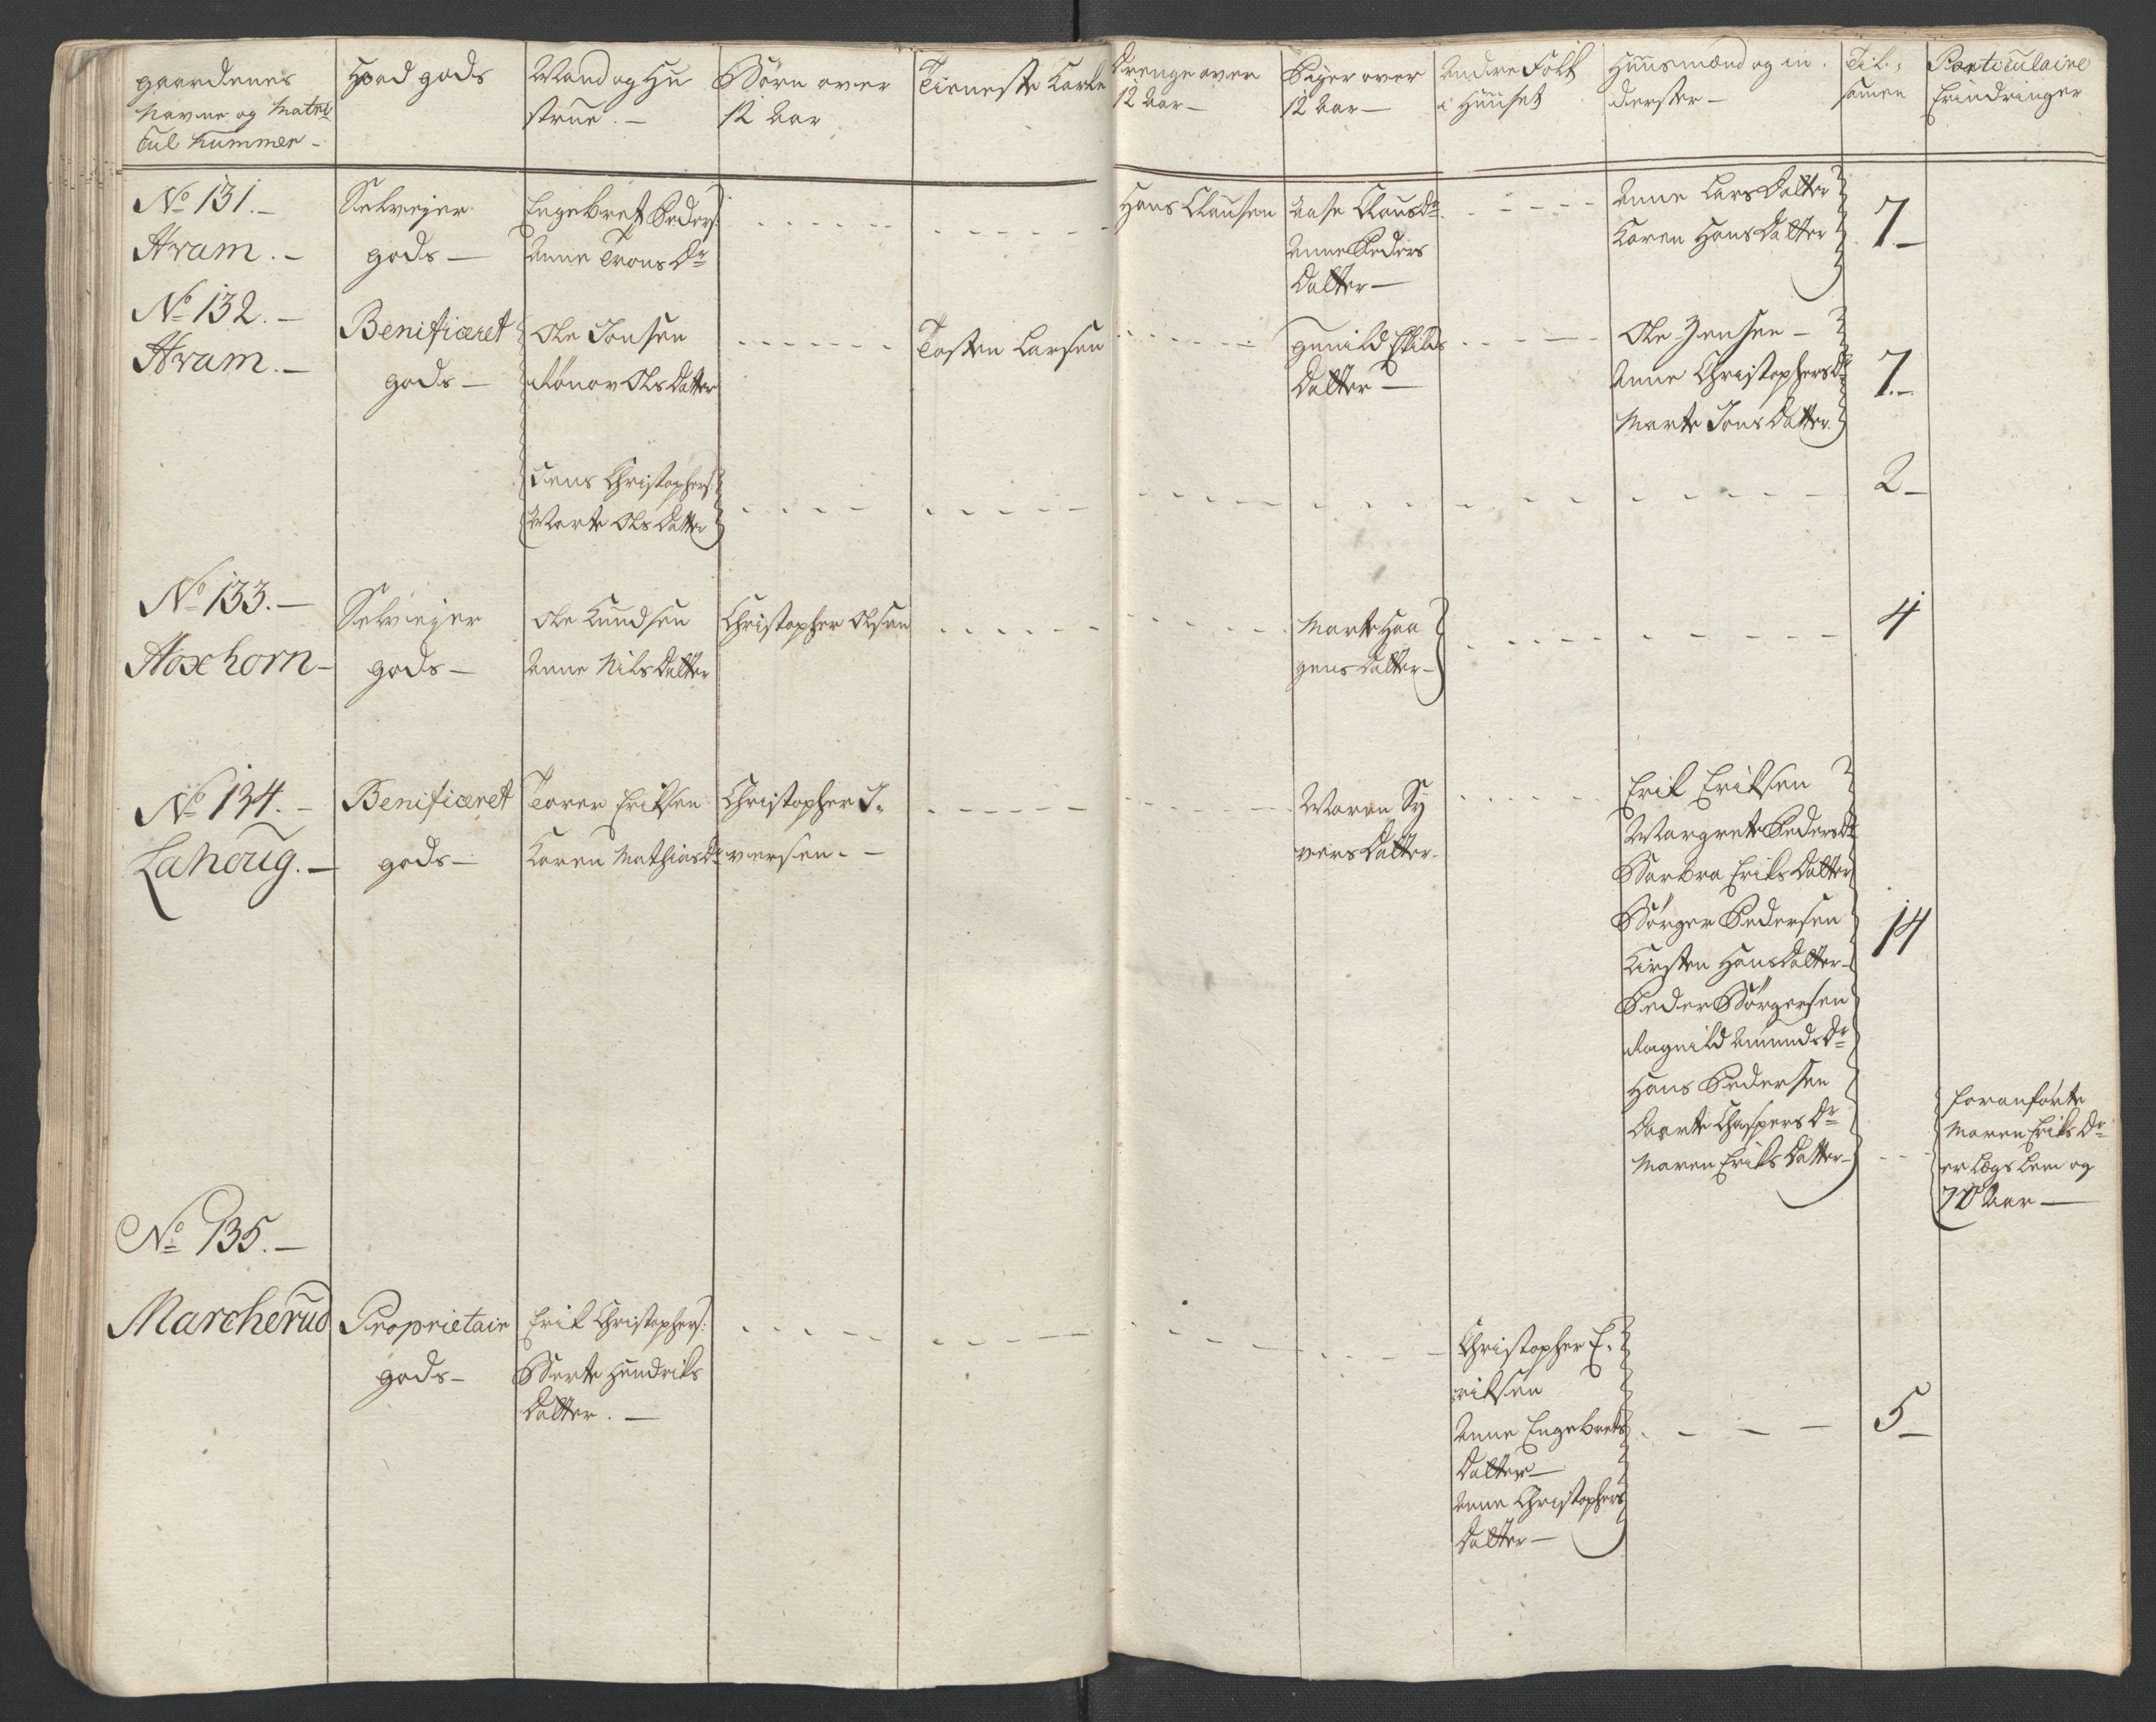 gaardenes
Navne og Matri
cul Nummer -
Hvad gods
Mand og Hu
strue. -
Börn over
12 Aar
Tieneste Karle
Drenge over
12 Aar -
Piger over
12 Aar -
Andre Folk
i Huuset
Huusmænd og in-
derster -
Til-
samen
Particulaire
Erindringer
No 131. -
Hram. -
Selvejer
gods -
Engebret Peders:
Anne Trons Dr
Hans Clausen
Aase Claus Dr
Anne Peders
Datter -
Anne Lars Datter
Karen Hans Datter
7. -
No 132. -
Hram. -
Benificeret
gods -
Ole Jonsen
Rönov Ols Datter
Tosten Larsen
gunild Eskilds
Datter -
Ole Jensen -
Anne Christophers Dr
Marte Jons Datter
7. -
Jens Christophers:
Marte Ols Datter
2 -
No 133. -
Hoxhorn -
Selvejer
gods -
Ole Knudsen
Anne Nils Datter
Christopher Olsen
Marte Haa
gens Datter -
4
No 134. -
Lahoug. -
Benificeret
gods -
Torer Eriksen
Karen Mathias Dr
Christopher I-
versen. -
Maren Sy
vers Datter -
Erik Eriksen
Margrete Peders Dr
Barbra Eriks Datter
Börger Pedersen
Kirsten Hans Datter -
Peder Börgersen
Ragnild Amunds Dr
Hans Pedersen
Dorte Chaspers Dr
Maren Eriks Datter -
14
foranförte
Maren Eriks Dr
er Lægs Lem og
70 Aar -
No 135. -
Marcherud
Proprietair
gods -
Erik Christophers:
Berte Hendriks
Datter. -
Christopher E-
riksen
Anne Engebrets
Datter -
Anne Christophers
Datter -
5 -